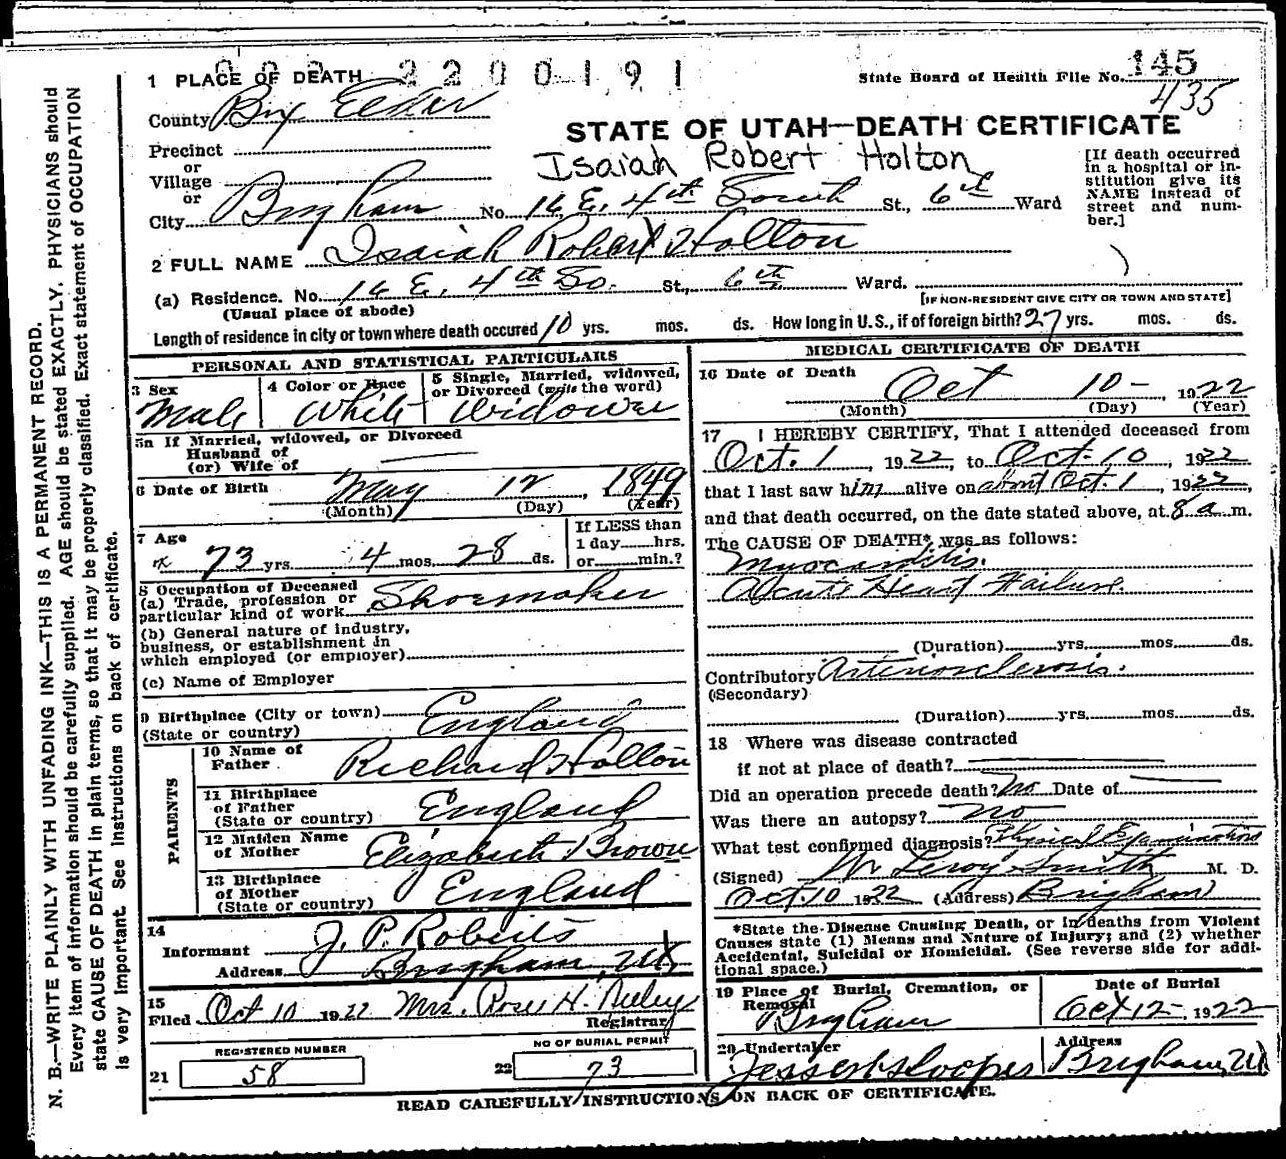 N. B.—WRITE PLAINLY WITH UNFADING INK—THIS IS A PERMANENT RECORD.
Every item of information should be carefully supplied. AGE should be stated EXACTLY. PHYSICIANS should
state CAUSE OF DEATH in plain terms, so that it may be properly classified. Exact statement of OCCUPATION
is very important. See instructions on back of certificate.
2200191
1 PLACE OF DEATH
State Board of Health File No. 145
435
County Box Elder
STATE OF UTAH—DEATH CERTIFICATE
Precinct
or
Village
or
Isaiah Robert Holton
[If death occurred
in a hospital or in-
stitution give its
NAME instead of
street and num-
ber.]
City Brigham No. 16 E. 4th South St., 6th Ward
2 FULL NAME Isaiah Robert Holton
(a) Residence. No. 16 E. 4th So. St., 6th Ward.
(Usual place of abode)
[IF NON-RESIDENT GIVE CITY OR TOWN AND STATE]
Length of residence in city or town where death occured 10 yrs. mos. ds. How long in U.S., if of foreign birth? 27 yrs. mos. ds.
PERSONAL AND STATISTICAL PARTICULARS
3 Sex
Male
4 Color or Race
White
5 Single, Married, widowed,
or Divorced (write the word)
Widower
5a If Married, widowed, or Divorced
Husband of
(or) Wife of
6 Date of Birth May 12, 1849
(Month) (Day) (Year)
7 Age
73 yrs. 4 mos. 28 ds.
If LESS than
1 day hrs.
or min.?
8 Occupation of Deceased
(a) Trade, profession or
particular kind of work Shoemaker
(b) General nature of industry,
business, or establishment in
which employed (or employer)
(c) Name of Employer
9 Birthplace (City or town)
(State or country) England
PARENTS
10 Name of
Father Richard Holton
11 Birthplace
of Father
(State or country) England
12 Maiden Name
of Mother Elizabeth Brown
13 Birthplace
of Mother
(State or country) England
14
Informant J. P. Roberts
Address Brigham, Ut.
15
Filed Oct 10 1922 Mrs. Rose H. Neeley
Registrar
REGISTERED NUMBER
21 58
NO OF BURIAL PERMIT
22 73
MEDICAL CERTIFICATE OF DEATH
16 Date of Death
Oct 10 - 1922
(Month) (Day) (Year)
17 I HEREBY CERTIFY, That I attended deceased from
Oct. 1, 1922 to Oct. 10, 1922
that I last saw him alive on about Oct. 1, 1922,
and that death occurred, on the date stated above, at 8 a m.
The CAUSE OF DEATH* was as follows:
Myocarditis.
Acute Heart Failure.
(Duration) yrs. mos. ds.
Contributory Arteriosclerosis.
(Secondary)
(Duration) yrs. mos. ds.
18 Where was disease contracted
if not at place of death?
Did an operation precede death? No Date of
Was there an autopsy? No
What test confirmed diagnosis? Physical Examinations
(Signed) W Leroy Smith M. D.
Oct. 10 1922 (Address) Brigham
*State the Disease Causing Death, or in deaths from Violent
Causes state (1) Means and Nature of Injury; and (2) whether
Accidental, Suicidal or Homicidal. (See reverse side for addi-
tional space.)
19 Place of Burial, Cremation, or
Removal
Brigham
Date of Burial
Oct 12 - 1922
20 Undertaker
Address
Brigham, Ut
READ CAREFULLY INSTRUCTIONS ON BACK OF CERTIFICATE.